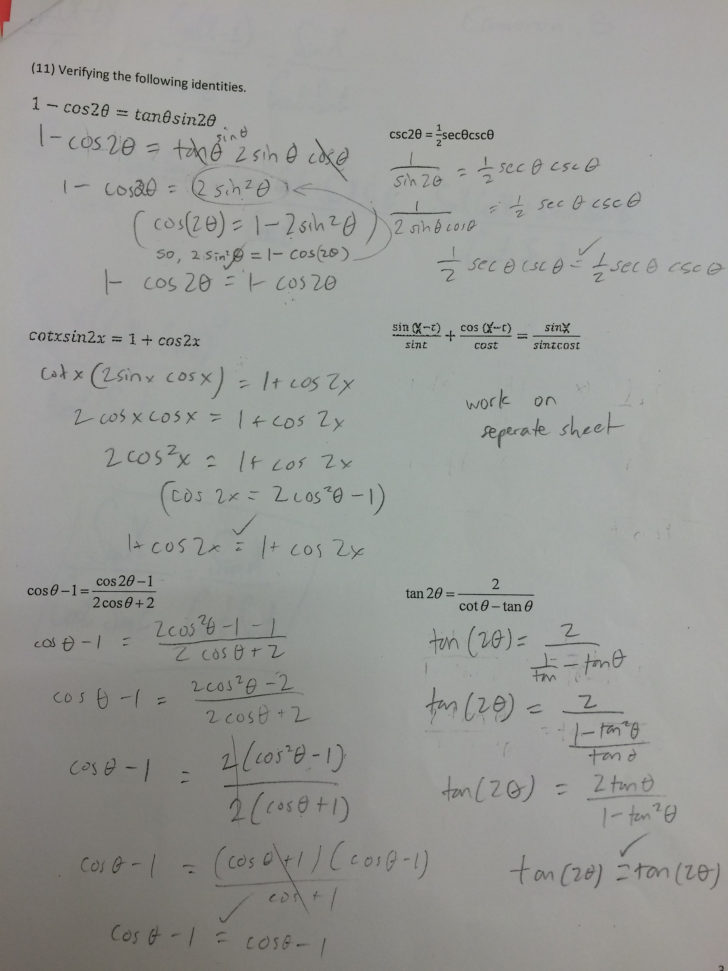 (11) Verifying the following identities.
1 − cos2θ = tanθsin2θ
1-cos2θ = tanθ sinθ 2sinθ cosθ
1- cos2θ = (2 sin²θ)
(cos(2θ) = 1-2sin²θ)
so, 2 sin²θ = 1- cos(2θ)
1- cos2θ =✓ 1- cos2θ
csc2θ = 1/2 secθcscθ
1/sin2θ = 1/2 sec θ csc θ
1/2sinθcosθ = 1/2 sec θ csc θ
1/2 sec θ csc θ =✓ 1/2 sec θ csc θ
cotxsin2x = 1 + cos2x
cot x (2sinx cosx) = 1+cos2x
2 cosx cosx = 1 + cos 2x
2cos²x = 1+ cos 2x
(cos 2x = 2cos²θ -1)
1+cos2x =✓ 1+ cos2x
sin (X−t)/sint + cos (X−t)/cost = sinX/sintcost
work on
seperate sheet
cosθ−1 = cos2θ−1/2cosθ+2
cosθ-1 = 2cos²θ-1-1/2cosθ+2
cosθ-1 = 2cos²θ-2/2cosθ+2
cosθ-1 = 2(cos²θ-1)/2(cosθ+1)
cosθ-1 = (cosθ+1)(cosθ-1)/cos+1
cosθ-1 =✓ cosθ-1
tan2θ = 2/cotθ−tanθ
tan(2θ) = 2/1/tan - tanθ
tan(2θ) = 2/1-tan²θ/tanθ
tan(2θ) = 2tanθ/1-tan²θ
tan(2θ) =✓ tan(2θ)